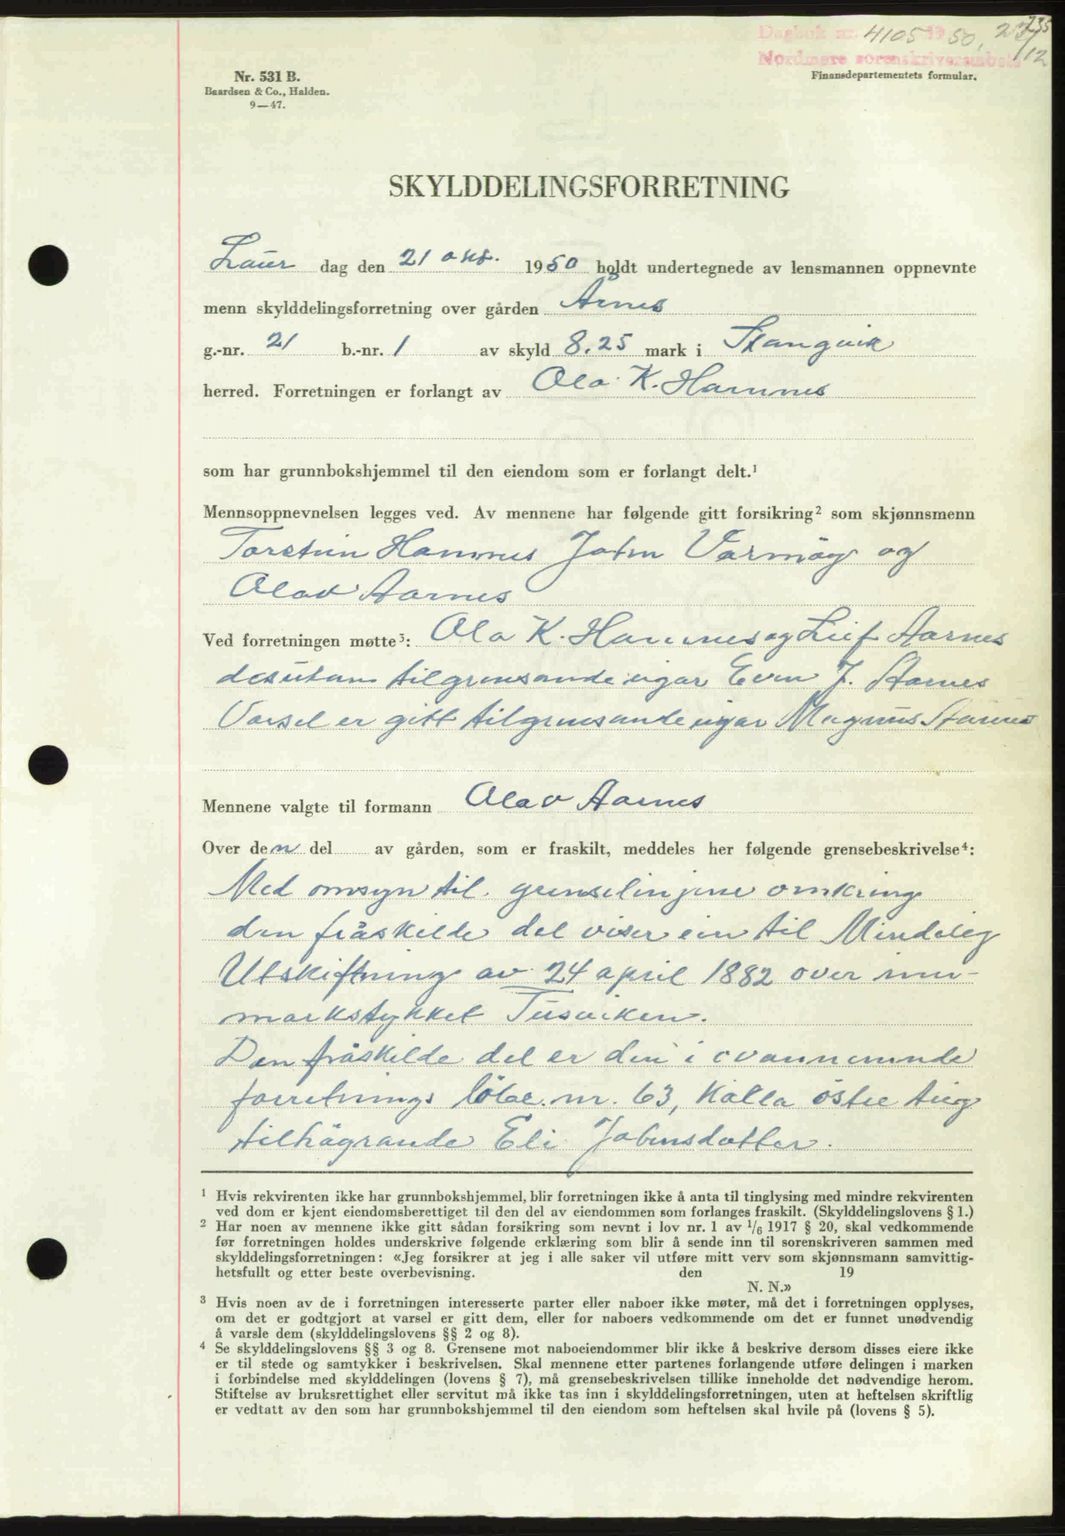 Dagbok nr. 4105 1950, 27/12
Nordmøre sorenskriverembete
235
Nr. 531 B.
Baardsen & Co., Halden.
9—47.
Finansdepartementets formular.
SKYLDDELINGSFORRETNING
Laur dag den 21 okt. 1950 holdt undertegnede av lensmannen oppnevnte
menn skylddelingsforretning over gården Årnes
g.-nr. 21 b.-nr. 1 av skyld 8,25 mark i Stangvik
herred. Forretningen er forlangt av Ola K. Hamnes
som har grunnbokshjemmel til den eiendom som er forlangt delt.¹
Mennsoppnevnelsen legges ved. Av mennene har følgende gitt forsikring² som skjønnsmenn
Torstein Hamnes John Varmåg og
Olav Aarnes
Ved forretningen møtte³: Ola K. Hamnes og Leif Aarnes
desutan tilgrensande eigar Even J. Aarnes
Varsel er gitt tilgrensande eigar Magnus Aarnes
Mennene valgte til formann Olav Aarnes
Over den del av gården, som er fraskilt, meddeles her følgende grensebeskrivelse⁴:
Med omsyn til grenselinjene omkring
den fråskilde del viser ein til Mindelig
Utskiftning av 24 april 1882 over inn-
markstykket Tusviken.
Den fråskilde del er den i ovannemnde
forretnings löbe.nr. 63, kalla östre teig
tilhøgrande Eli Johnsdotter.
¹ Hvis rekvirenten ikke har grunnbokshjemmel, blir forretningen ikke å anta til tinglysing med mindre rekvirenten
ved dom er kjent eiendomsberettiget til den del av eiendommen som forlanges fraskilt. (Skylddelingslovens § 1.)
² Har noen av mennene ikke gitt sådan forsikring som nevnt i lov nr. 1 av 1/6 1917 § 20, skal vedkommende
før forretningen holdes underskrive følgende erklæring som blir å sende inn til sorenskriveren sammen med
skylddelingsforretningen: «Jeg forsikrer at jeg i alle saker vil utføre mitt verv som skjønnsmann samvittig-
hetsfullt og etter beste overbevisning. den 19
N. N.»
³ Hvis noen av de i forretningen interesserte parter eller naboer ikke møter, må det i forretningen opplyses,
om det er godtgjort at varsel er gitt dem, eller for naboers vedkommende om det er funnet unødvendig
å varsle dem (skylddelingslovens §§ 2 og 8).
⁴ Se skylddelingslovens §§ 3 og 8. Grensene mot naboeiendommer blir ikke å beskrive dersom disses eiere ikke
er til stede og samtykker i beskrivelsen. Skal mennene etter partenes forlangende utføre delingen i marken
i forbindelse med skylddelingen (lovens § 7), må grensebeskrivelsen tillike inneholde det nødvendige herom.
Stiftelse av bruksrettighet eller servitut må ikke tas inn i skylddelingsforretningen, uten at heftelsen skriftlig
er vedtatt av den som har grunnbokshjemmel til den eiendom som heftelsen skal hvile på (lovens § 5).